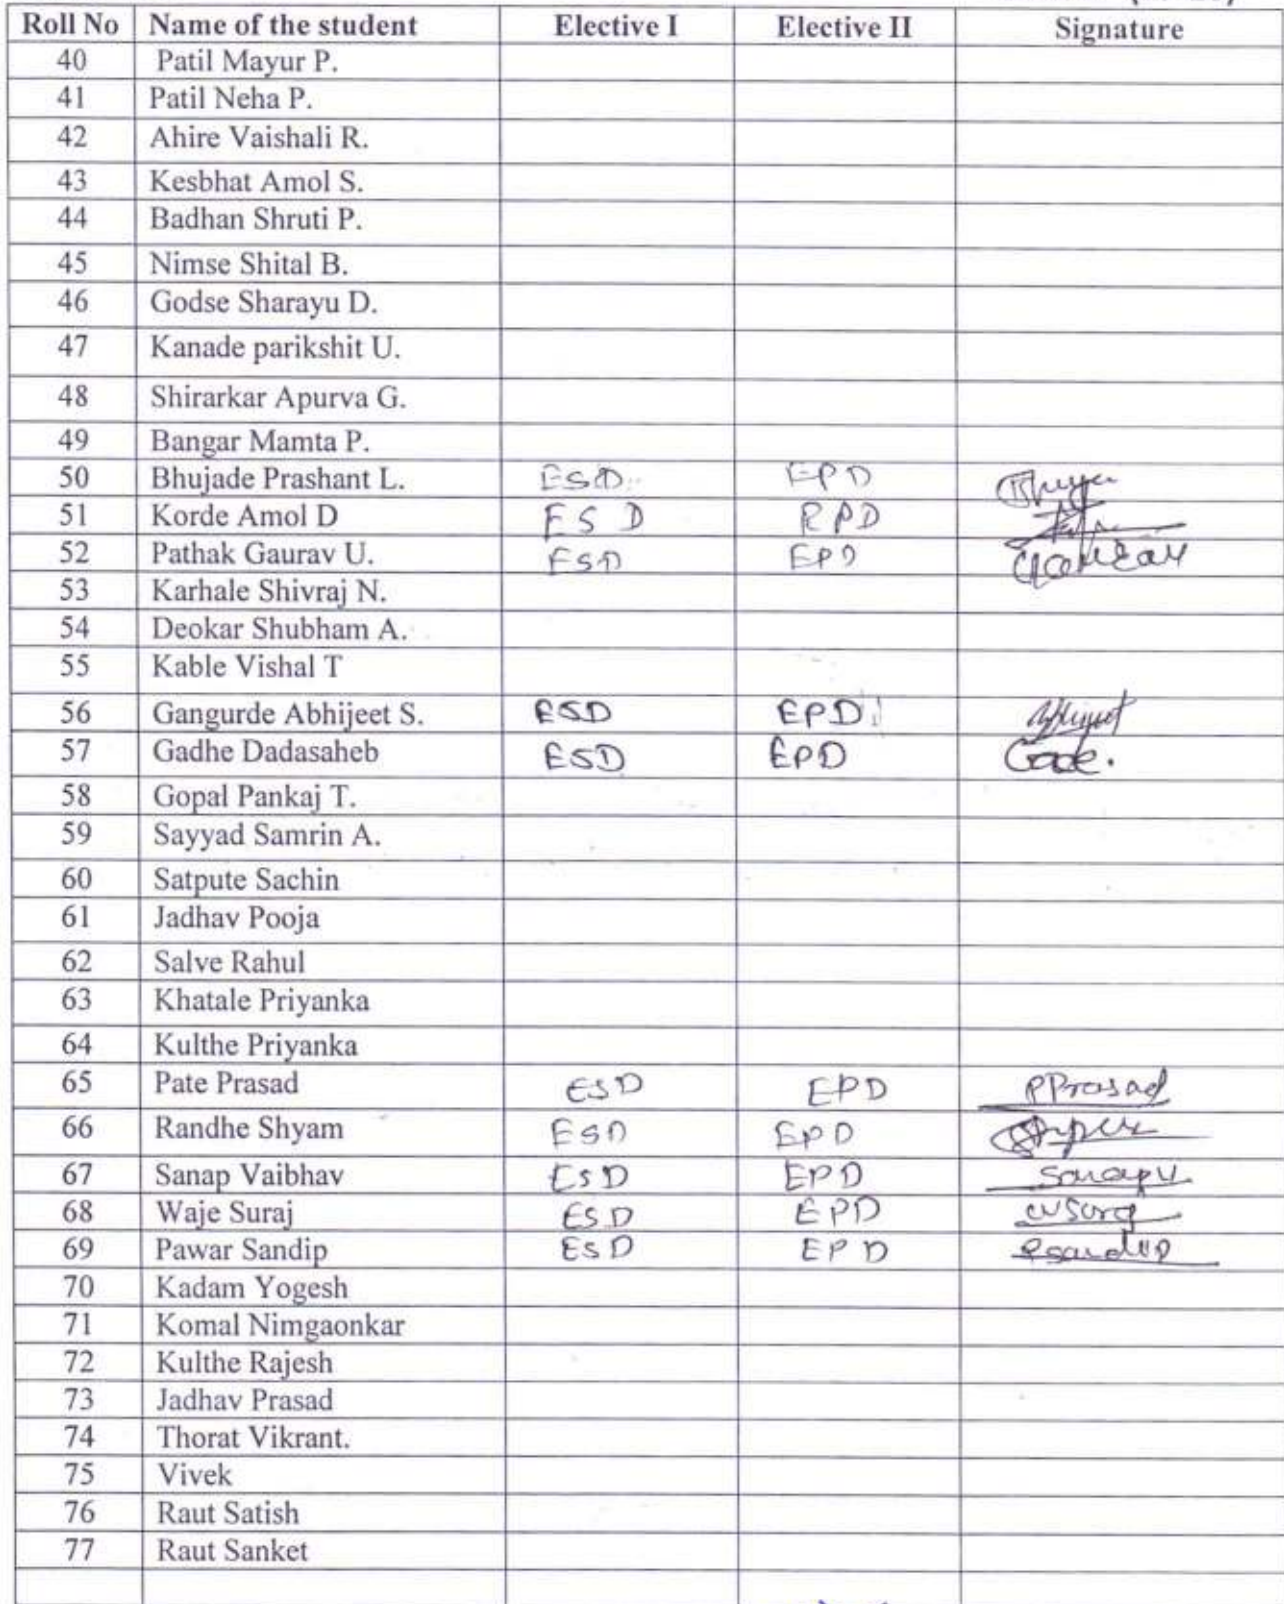 Roll No Name of the student Elective I Elective II Signature
40 Patil Mayur P.
41 Patil Neha P.
42 Ahire Vaishali R.
43 Kesbhat Amol S.
44 Badhan Shruti P.
45 Nimse Shital B.
46 Godse Sharayu D.
47 Kanade parikshit U.
48 Shirarkar Apurva G.
49 Bangar Mamta P.
50 Bhujade Prashant L. ESD EPD
51 Korde Amol D ESD RPD
52 Pathak Gaurav U. ESD EPD
53 Karhale Shivraj N.
54 Deokar Shubham A.
55 Kable Vishal T
56 Gangurde Abhijeet S. ESD EPD
57 Gadhe Dadasaheb ESD EPD
58 Gopal Pankaj T.
59 Sayyad Samrin A.
60 Satpute Sachin
61 Jadhav Pooja
62 Salve Rahul
63 Khatale Priyanka
64 Kulthe Priyanka
65 Pate Prasad ESD EPD PPrasad
66 Randhe Shyam ESD EPD
67 Sanap Vaibhav ESD EPD
68 Waje Suraj ESD EPD
69 Pawar Sandip ESD EPD
70 Kadam Yogesh
71 Komal Nimgaonkar
72 Kulthe Rajesh
73 Jadhav Prasad
74 Thorat Vikrant.
75 Vivek
76 Raut Satish
77 Raut Sanket